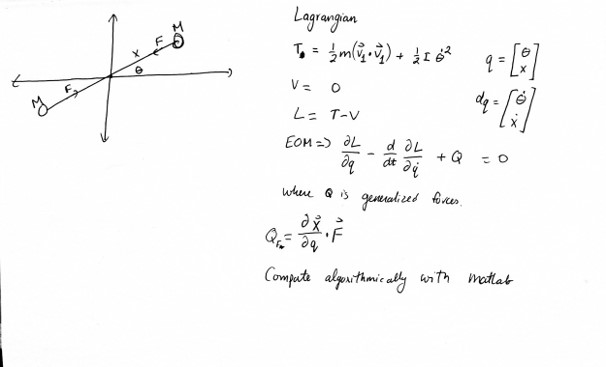 M
F
x
θ
F
M
Lagrangian
T = ½ m(v⃗₁·v⃗₁) + ½ I θ̇²
q = [θ x]
V = 0
dq = [θ̇ ẋ]
L = T-V
EOM => ∂L/∂q - d/dt ∂L/∂q̇ + Q = 0
where Q is generalized forces.
Q_F = ∂x⃗/∂q · F⃗
Compute algorithmically with matlab